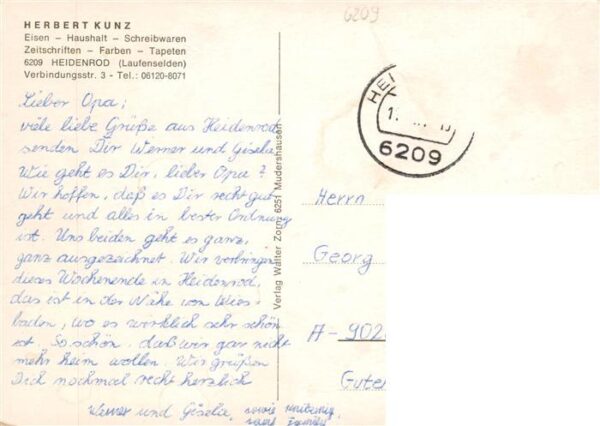 HERBERT KUNZ
Eisen – Haushalt – Schreibwaren
Zeitschriften – Farben – Tapeten
6209 HEIDENROD (Laufenselden)
Verbindungsstr. 3 - Tel.: 06120-8071
6209
Lieber Opa,
viele liebe Grüße aus Heidenrod
senden Dir Werner und Gisela.
Wie geht es Dir, lieber Opa?
Wir hoffen, daß es Dir recht gut
geht und alles in bester Ordnung
ist. Uns beiden geht es ganz,
ganz ausgezeichnet. Wir verbringen
dieses Wochenende in Heidenrod,
das ist in der Nähe von Wies-
baden, wo es wirklich sehr schön
ist. So schön, daß wir gar nicht
mehr heim wollen. Wir grüßen
Dich nochmal recht herzlich
Werner und Gisela, sowie
Verlag Walter Zorn, 6251 Mudershausen
HEI
6209
Herrn
Georg
A-902
Guten